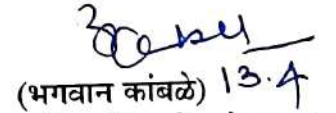 (भगवान कांबळे) 13.4